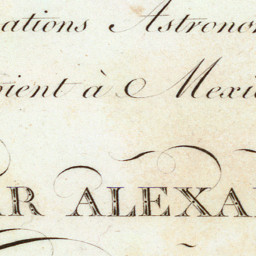 ations Astrono
oient à Mexi
AR ALEXA